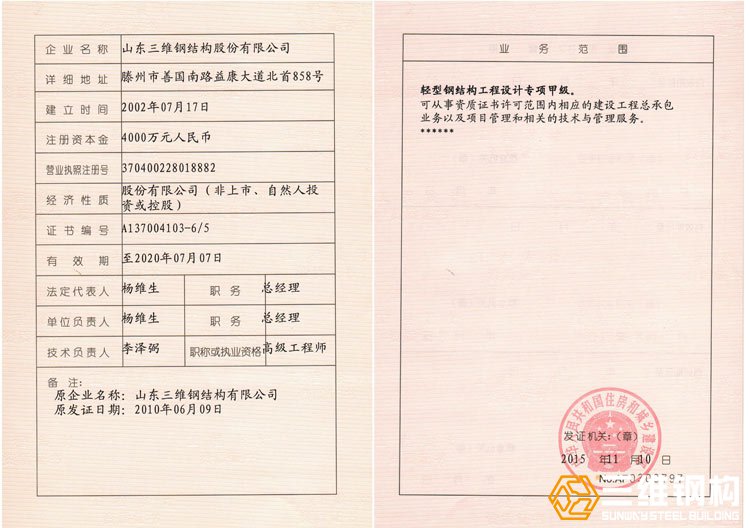 企业名称 山东三维钢结构股份有限公司
详细地址 滕州市善国南路益康大道北首858号
建立时间 2002年07月17日
注册资本金 4000万元人民币
营业执照注册号 370400228018882
经济性质 股份有限公司（非上市、自然人投
资或控股）
证书编号 A137004103-6/5
有效期 至2020年07月07日
法定代表人 杨维生 职务 总经理
单位负责人 杨维生 职务 总经理
技术负责人 李泽弼 职称或执业资格 高级工程师
备注：
原企业名称：山东三维钢结构有限公司
原发证日期：2010年06月09日
业务范围
轻型钢结构工程设计专项甲级。
可从事资质证书许可范围内相应的建设工程总承包
业务以及项目管理和相关的技术与管理服务。
******
发证机关：（章）
2015 年11 月10 日
三维钢构
SUNWAY STEEL BUILDING